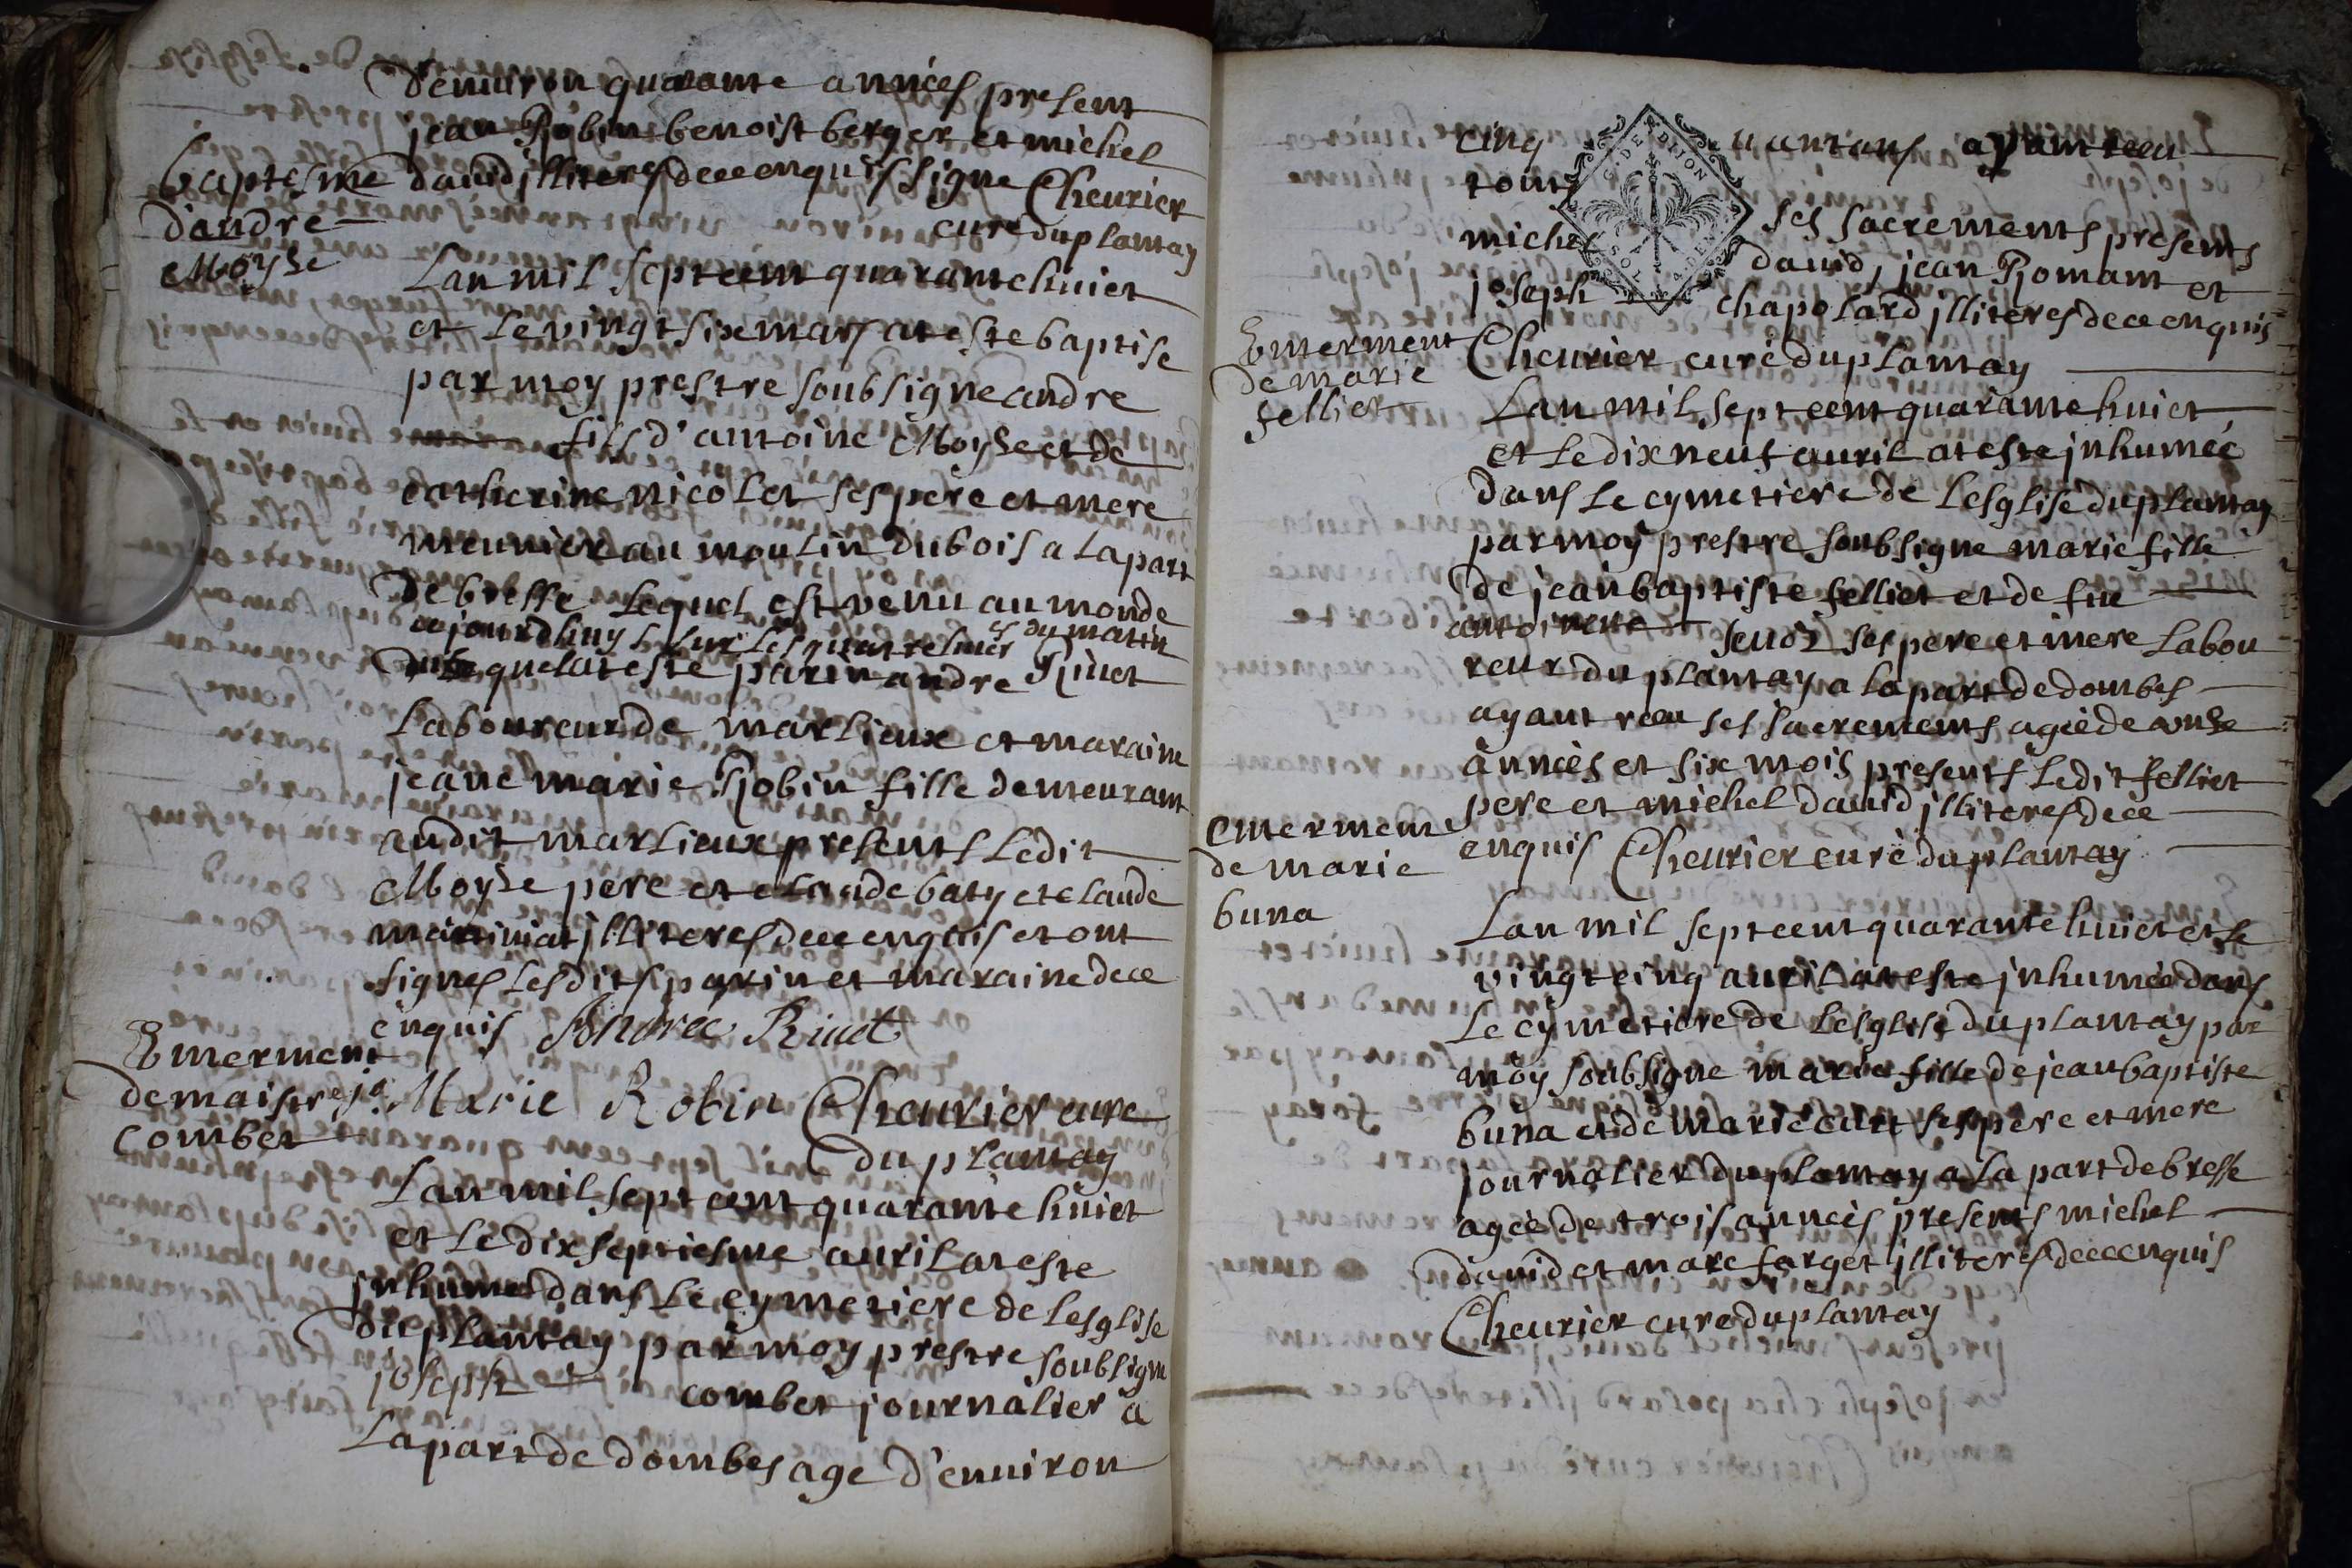 denuiron quarante années present
jean Robin benoist berger et michel
dauid jlliteres de ce enquis signe Cheurier
cure du plantay
baptesme
d'andre
Moyse
Lan mil sept cent quarante huict
et le vingt six mars at este baptise
par moy prestre soubsigne andre
fils d'antoine Moyse et de
catherine nicolet ses pere et mere
meunier au moulin du bois a la part
de bresse lequel est venu au monde
aujourdhuy sur les quatre heures du matin
duquel at este parin andre Riuet
laboureur de marlieux et maraine
jeane marie Robin fille demeurant
audit marlieux presents ledit
Moyse pere et claude baty et claude
jlliteres de ce enquis et ont
signes lesdits parin et maraine de ce
enquis Andree Riuet
ja. Marie Robin Cheurier cure
du plantay
Enterrement
de maistre
combet
Lan mil sept cent quarante huict
et le dix septiesme auril at este
jnhumé dans le cymetiere de lesglise
du plantay par moy prestre soubsigne
joseph combet journalier a
la part de dombes age d'enuiron
cinq u ant ans ayant receu
tous ses sacrements presents
michel dauid, jean Romant et
joseph chapolard jlliteres de ce enquis
Cheurier curé du plantay
Enterrement
de marie
felliet
Lan mil sept cent quarante huict
et le dix neuf auril at este jnhumée
dans le cymetiere de lesglise du plantay
par moy prestre soubsigne marie fille
de jean baptiste felliet et de fue
antoinette ses pere et mere labou
reur du plantay a la part de dombes
ayant receu ses sacrements agée de onze
années et six mois presents ledit felliet
pere et michel dauid jlliteres de ce
enquis Cheurier curé du plantay
enterrement
de marie
buna
Lan mil sept cent quarante huict et le
vingt cinq auril at este jnhumée dans
le cymetiere de lesglise du plantay par
moy soubsigne marie fille de jean baptiste
buna et de marie cure ses pere et mere
journalier du plantay a la part de bresse
agée de trois années presents michel
dauid et marc farget jlliteres de ce enquis
Cheurier cure du plantay
G. DE DIJON